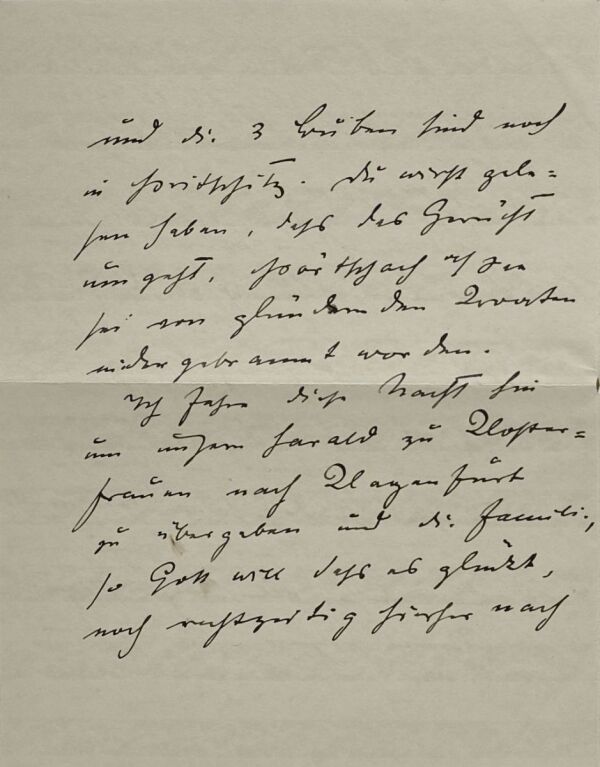 und die 3 Buben sind noch
in Pritschitz. Du wirst gele=
sen haben, dass das Gerücht
umgeht, Pörtschach a/See
sei von plündernden Kroaten
niedergebrannt worden.
Ich fahre diese Nacht hin
um unsern Harald zu Kloster=
frauen nach Klagenfurt
zu übergeben und die Familie,
so Gott will dass es glückt,
noch rechtzeitig hierher nach